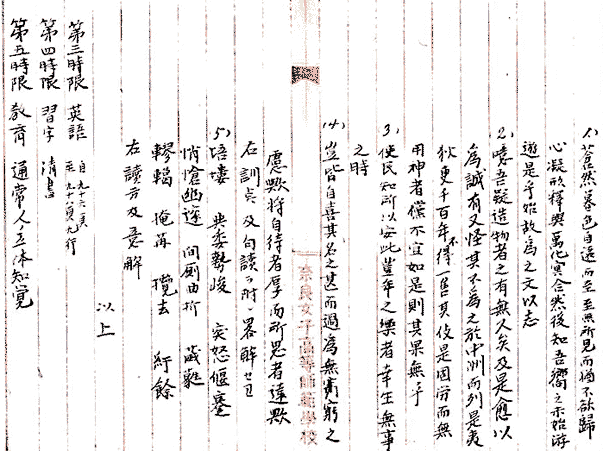 1) 蒼然暮色自遠而至至無所見而猶不欲歸
心凝形釋與萬化冥合然後知吾嚮之未始游
遊是乎始故為之文以志
2) 噫吾疑造物者之有無久矣及是愈以
為誠有又怪其不為之於中洲而列是夷
狄更千百年不得一售其伎是固労而無
用神者儻不宜如是則其果無乎
3) 使民知所以安此豊年之樂者幸生無事
之時
(4) 豈皆自喜其名之甚而過為無窮之
慮歟将自待者厚而所思者遠歟
右訓点及句読ヲ附シ畧解セヨ
奈良女子高等師範學校
5) 培塿 勢峻 突怒偃蹇
悄愴幽邃 間厠曲折
轇轕 攬去 紆餘
右讀方及意解
以上
第三時限 英語 自九十六頁 至九十八頁九行
第四時限 習字 清書
第五時限 教育 通常人ノ立体知覚